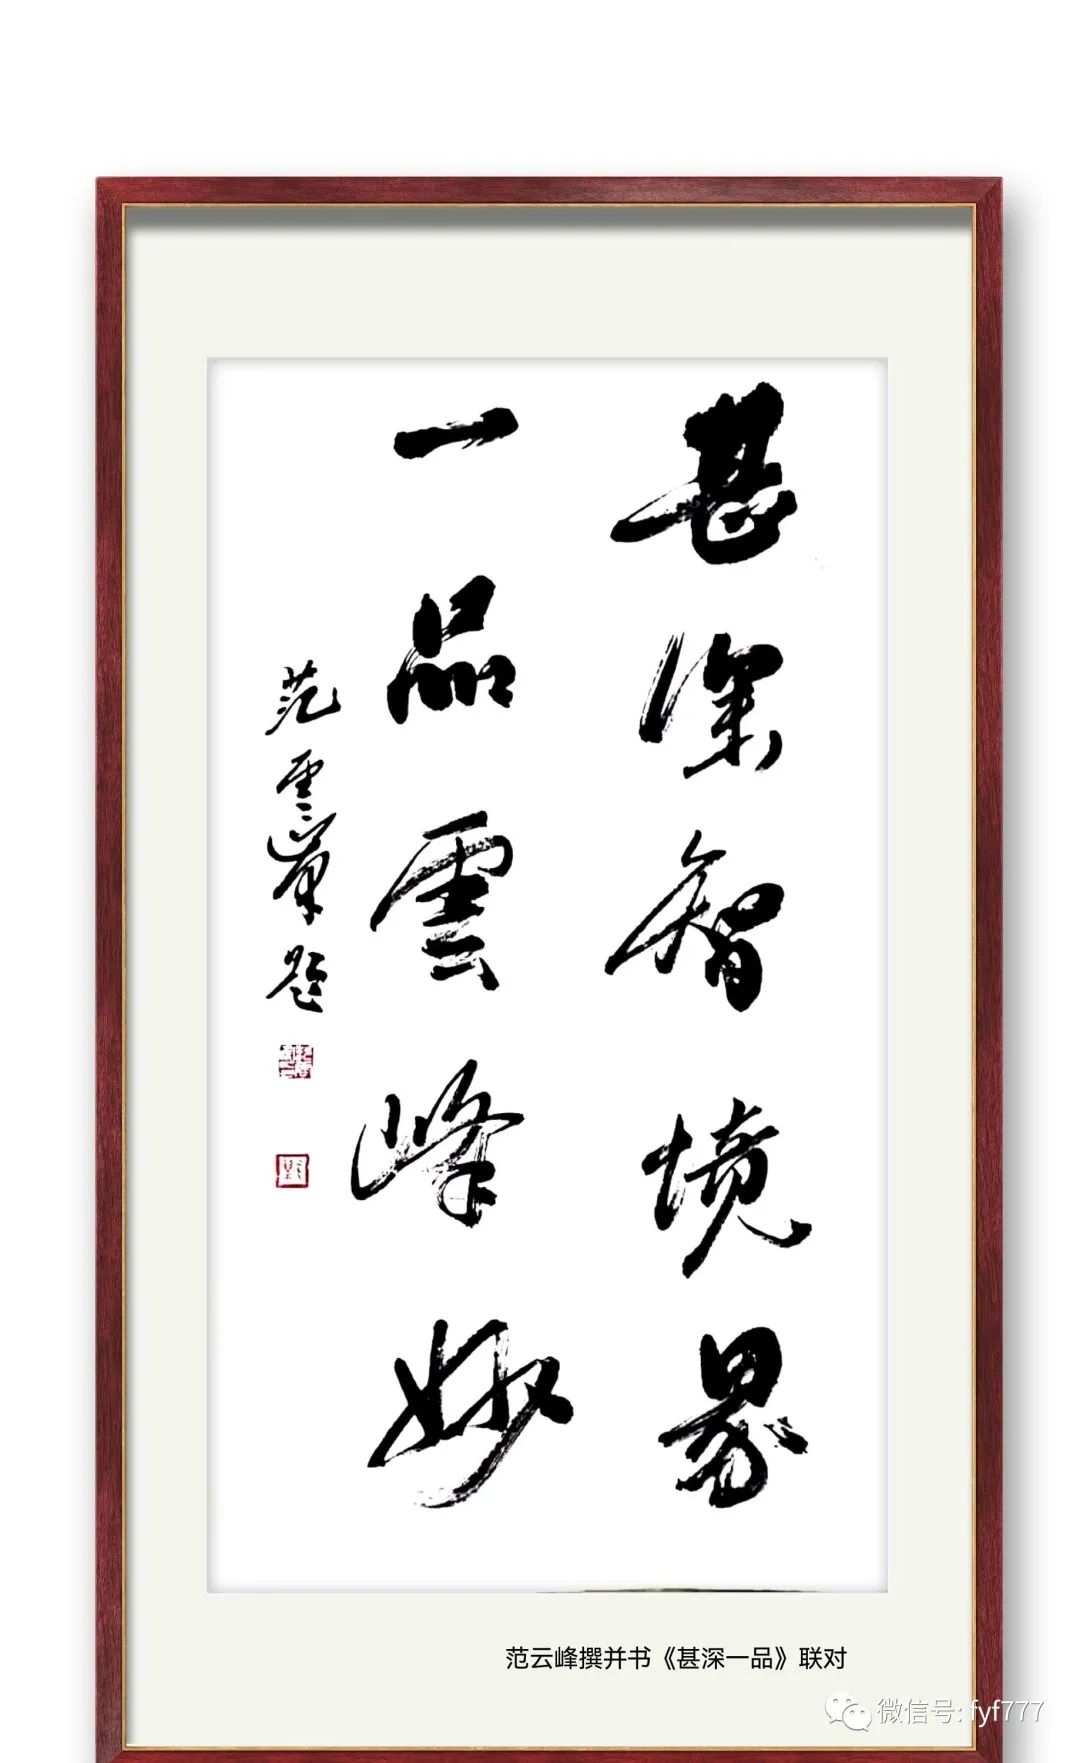 甚深智境界
一品雲峰妙
范雲峯題
范云峰撰并书《甚深一品》联对
微信号: fyf777